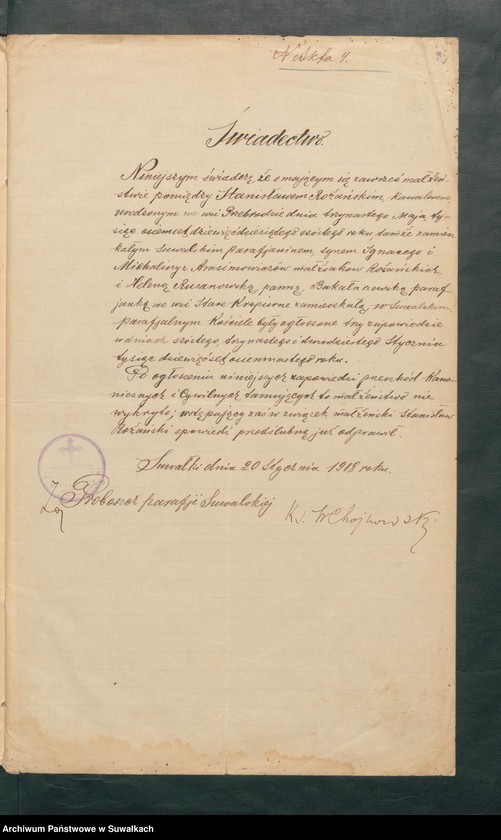 N Akta 4.
Świadectwo.
Niniejszym świadczę że o mającym się zawrzeć małżeń-
stwie pomiędzy Stanisławem Rożańskim, kawalerem
urodzonym we wsi Przebrodzie dnia trzynastego Maja ty-
siąc osiemset dziewięćdziesiątego ósmego roku tamże zamiesz-
kałym Suwalskim parafjaninem, synem Ignacego i
Michaliny z Arasimowiczów małżonków Rożańskich
i Heleną Rusanowską panną Bakałarzewską paraf-
janką we wsi Stare zamieszkałą, w Suwalskim
parafjalnym Kościele były ogłoszone trzy zapowiedzie
w dniach szóstego, trzynastego i dwudziestego Stycznia
tysiąc dziewięćset osiemnastego roku.
Po ogłoszeniu niniejszych zapowiedzi przeszkód Kano-
nicznych i Cywilnych tamujących to małżeństwo nie
wykryto, wstępujący zaś w związek małżeński Stanisław
Rożański spowiedź przedślubną już odprawił.
Suwałki dnia 20 Stycznia 1918 roku.
Proboszcz parafji Suwalskiej
Ks. WChojnowski
Archiwum Państwowe w Suwałkach